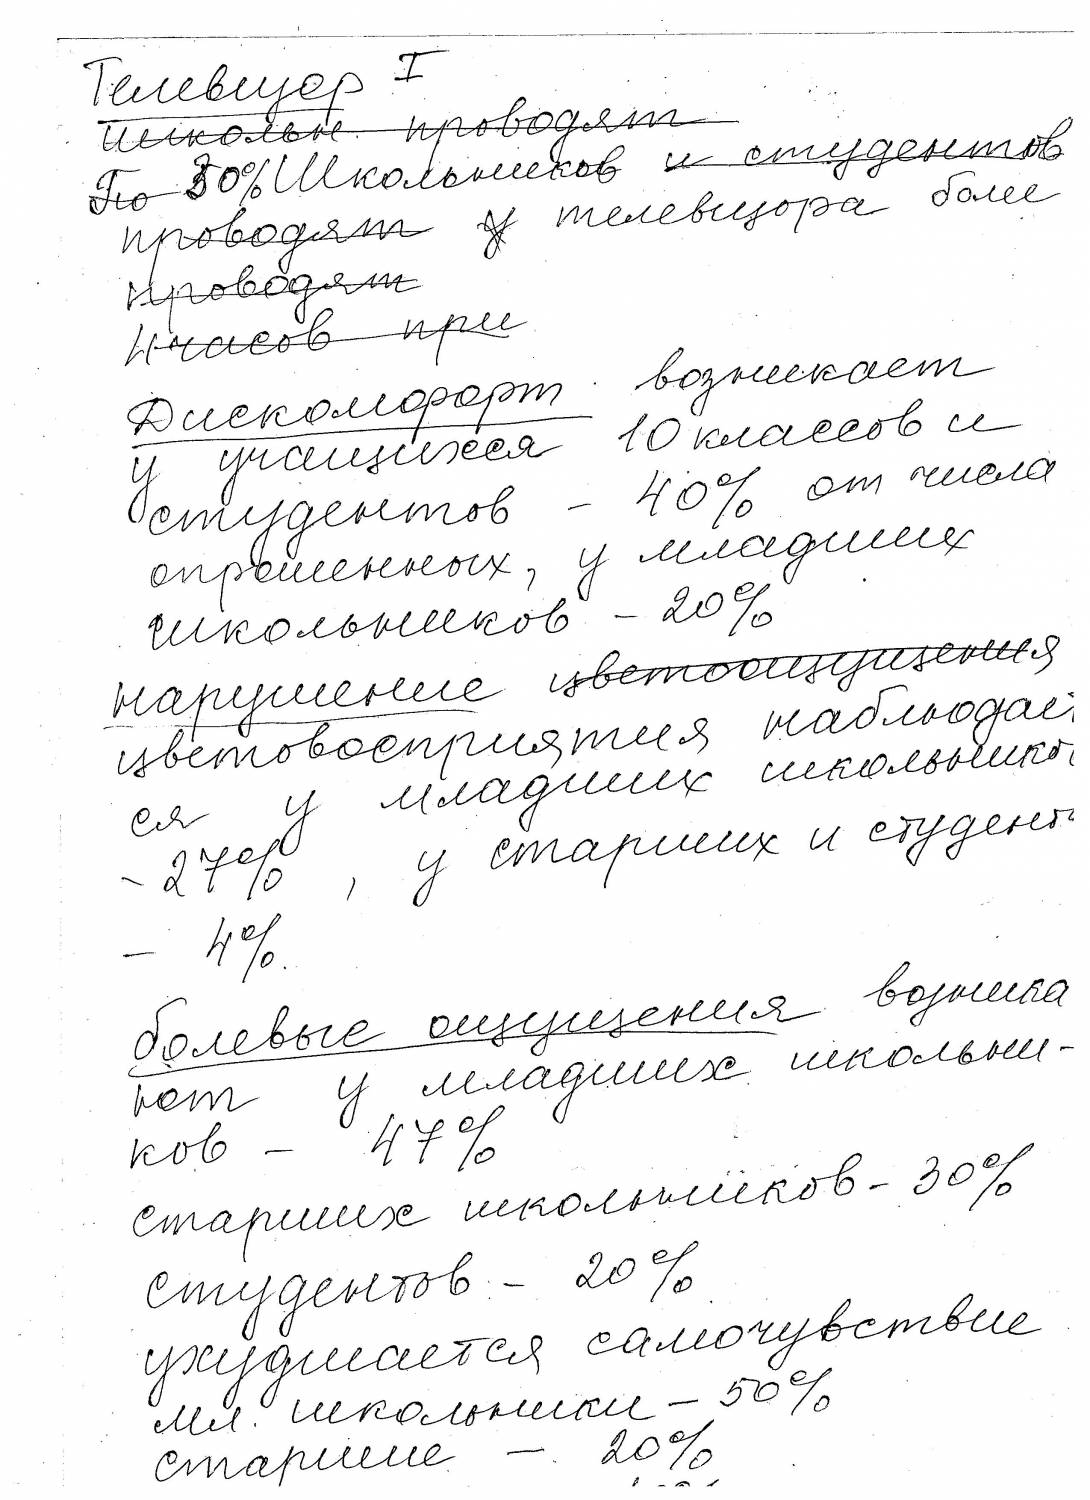 Телевизор I
школьн. проводят
По 50% Школьников и студентов
проводят у телевизора более
проводят
4 часов при
Дискомфорт возникает
у учащихся 10 классов и
студентов - 40% от числа
опрошенных, у младших
школьников - 20%
нарушение цветоощущения
цветовосприятия наблюдает
ся у младших школьников
- 27%, у старших и студент
- 4%.
болевые ощущения возника
ют у младших школьни-
ков - 47%
старших школьников - 30%
студентов - 20%
ухудшается самочувствие
мл. школьники - 50%
старшие - 20%